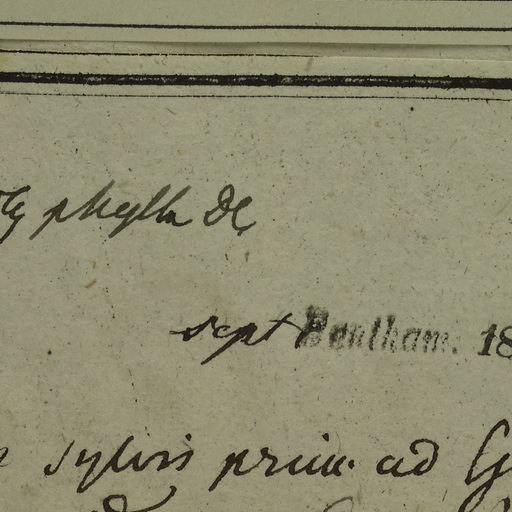 phylla DC
sept Bentham. 18
sylvis prim. ad G